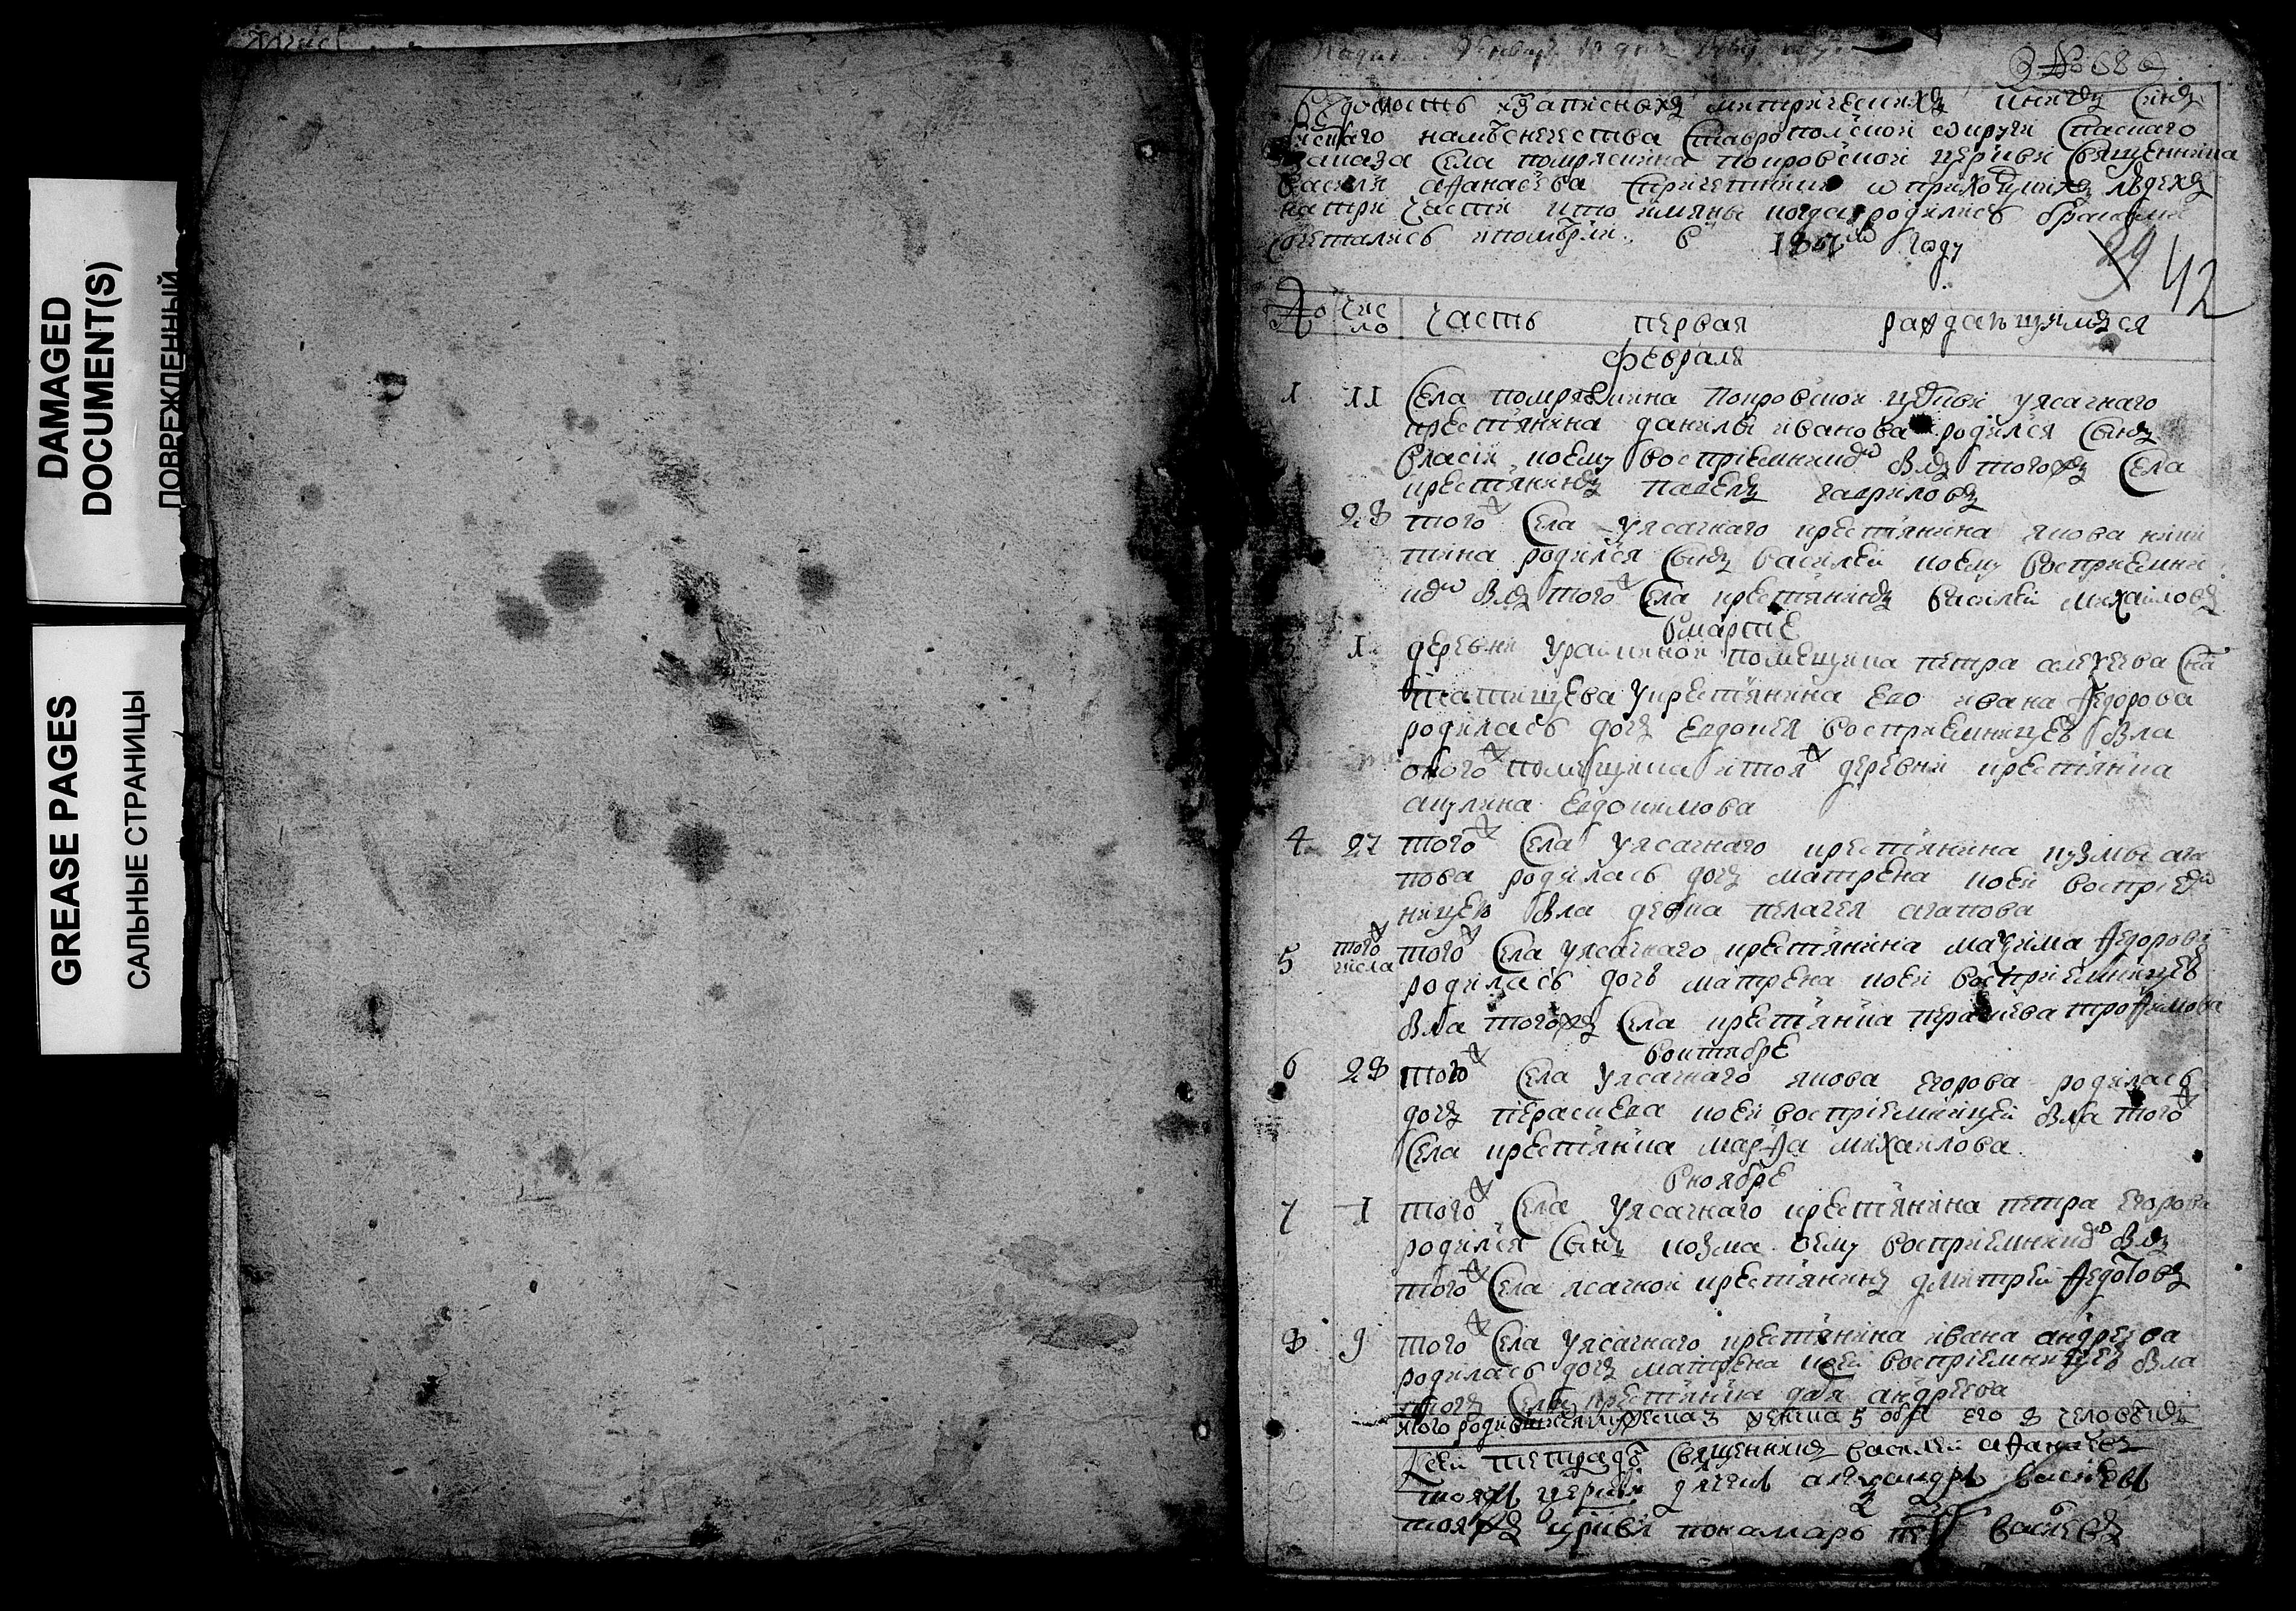 DAMAGED
DOCUMENT(S)
ПОВРЕЖДЕННЫЙ
GREASE PAGES
САЛЬНЫЕ СТРАНИЦЫ
№ 68
Ведомость записных метрических книгъ Синб
наместничества Ставропольской округи Спаского
села помряскина покровской церкви священника
Василя афанасева спричетники о приходящих людехъ
натри части кто имяны когда родились браком
сочетались ипомерли в 1 году
39 42
№ Чис
ло
часть первая раждающимъся
февраля
1 11 Села помряскина Покровской церкви уясачнаго
крестьянина данилы иванова родился сынъ
власий коему восприемником былъ тогожъ Села
крестьянинъ павелъ гавриловъ
28 того ж Села уясачнаго крестьянина якова ники
тина родился сынъ василей коему восприемни
ком былъ того ж Села крестьянинъ василей михайловъ
вмарте
1 деревни помещика петра алексеева сна
татищева укрестьянина ево ивана федорова
родилась дочь евдокея восприемницею была
оного ж помещика итоя ж деревни крестьянка
акулина евдокимова
4 27 того ж Села уясачнаго крестьянина кузмы ага
пова родилась дочь матрена коей восприем
ницею была девка пелагея агапова
5 того ж
числа
того ж Села уясачнаго крестьянина максима федорова
родилась дочь матрена коей восприемницею
была тогожъ Села крестьянка парасева трофимова
воктябре
6 28 того ж Села уясачнаго якова егорова родилась
дочь параскева коей восприемницей была того ж
Села крестьянка марфа михайлова
вноябре
7 1 того ж Села уясачнаго крестьянина петра егорова
родился сынъ козма оему восприемником былъ
того ж Села ясачной крестьянинъ дмитрей федотовъ
8 9 того ж Села уясачнаго крестьянина ивана андреева
родилась дочь матрена коей восприемницею была
Села крестьянка андреева
итого мужеска 3 женска 5 обоего 8 человекъ
Ксей тетраде священникъ василей афанасевъ
тояжъ церкви дячекъ александръ василевъ
тояжъ цркви понамарь василевъ